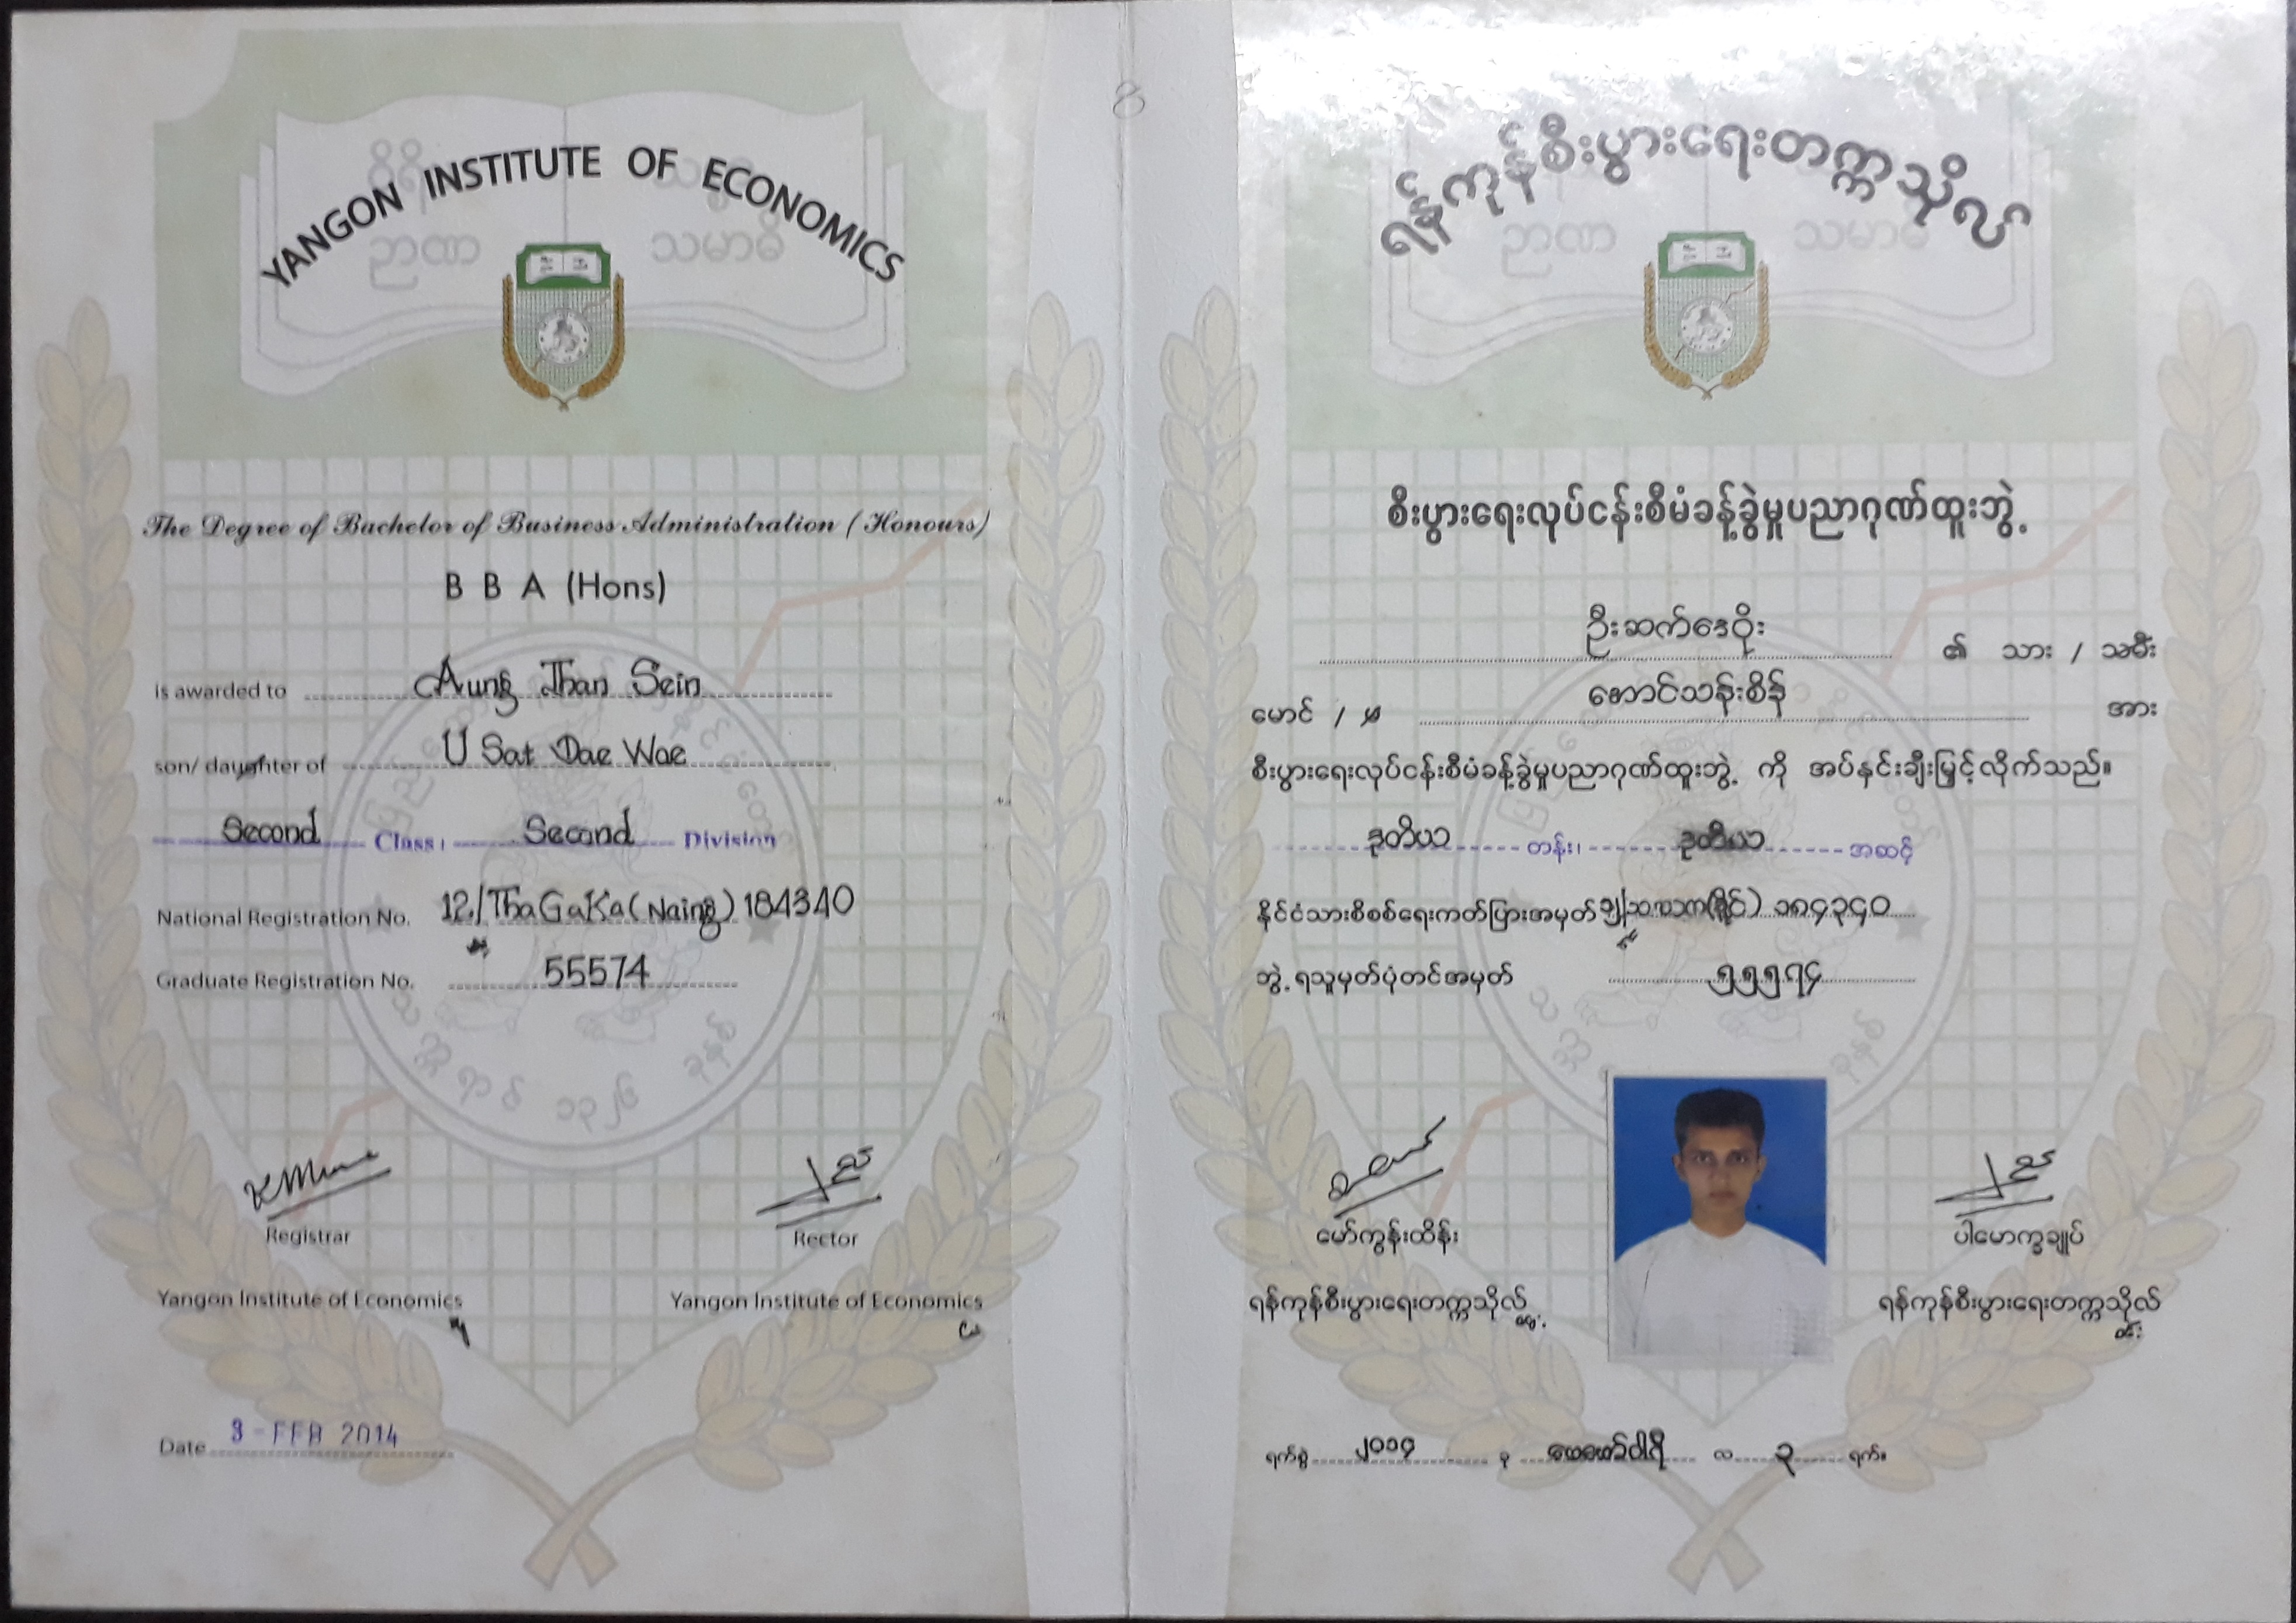 8
YANGON INSTITUTE OF ECONOMICS
ဉာဏ သမာဓိ
The Degree of Bachelor of Business Administration (Honours)
B B A (Hons)
is awarded to Aung Than Sein
son/ daughter of U Sat Dae Woe
Second Class, Second Division
National Registration No. 12/ThaGaKa(Naing)184340
Graduate Registration No. 55574
Registrar Rector
Yangon Institute of Economics Yangon Institute of Economics
Date 3 - FEB 2014
ရန်ကုန်စီးပွားရေးတက္ကသိုလ်
ဉာဏ သမာဓိ
စီးပွားရေးလုပ်ငန်းစီမံခန့်ခွဲမှုပညာဂုဏ်ထူးဘွဲ့
ဦးဆက်ဒေဝိုး ၏ သား / သမီး
မောင် / မ အောင်သန်းစိန် အား
စီးပွားရေးလုပ်ငန်းစီမံခန့်ခွဲမှုပညာဂုဏ်ထူးဘွဲ့ ကို အပ်နှင်းချီးမြှင့်လိုက်သည်။
ဒုတိယ တန်း၊ ဒုတိယ အဆင့်
နိုင်ငံသားစိစစ်ရေးကတ်ပြားအမှတ် ၁၂/သဃက(နိုင်) ၁၈၄၃၄၀
ဘွဲ့ရသူမှတ်ပုံတင်အမှတ် ၅၅၅၇၄
မော်ကွန်းထိန်း ပါမောက္ခချုပ်
ရန်ကုန်စီးပွားရေးတက္ကသိုလ် ရန်ကုန်စီးပွားရေးတက္ကသိုလ်
ရက်စွဲ ၂၀၁၄ ခု ဖေဖော်ဝါရီ လ ၃ ရက်။